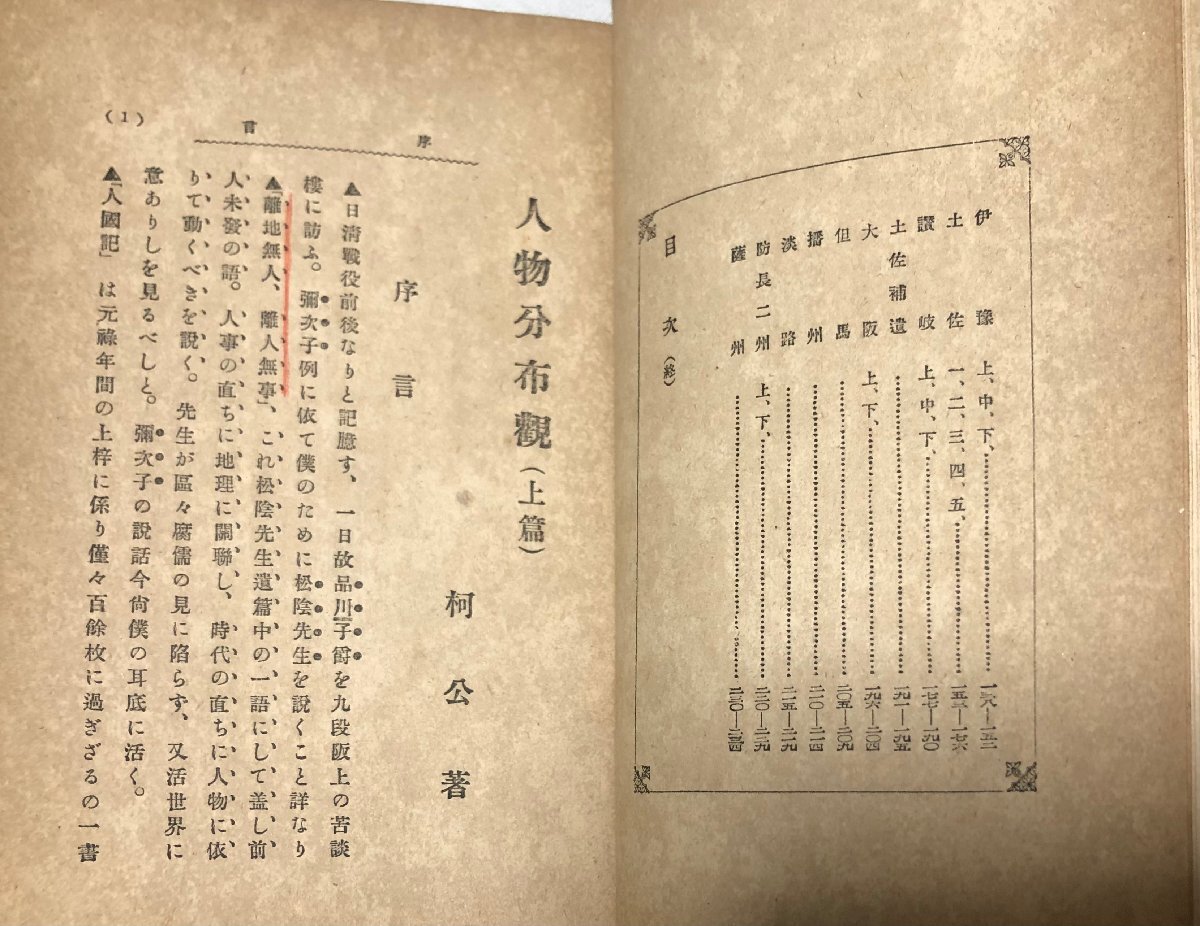 伊豫 上、中、下、…… 一三八―一五二
土佐 一、二、三、四、五、…… 一五三―一七六
讃岐 上、中、下、…… 一七七―一九〇
土佐補遺…… 一九一―一九五
大阪 上、下、…… 一九六―二〇四
但馬…… 二〇五―二〇九
播州…… 二一〇―二一四
淡路…… 二一五―二一九
防長二州 上、下、…… 二二〇―二二九
薩州…… 二三〇―二三四
目次(終)
序言
(1)
人物分布觀(上篇)
柯公著
序言
▲日清戰役前後なりと記臆す、一日故品川子爵を九段阪上の苦談
樓に訪ふ。彌次子例に依て僕のために松陰先生を說くこと詳なり
▲「離地無人、離人無事」、これ松陰先生遺篇中の一語にして蓋し前
人未發の語。人事の直ちに地理に關聯し、時代の直ちに人物に依
りて動くべきを說く。先生が區々腐儒の見に陷らず、又活世界に
意ありしを見るべしと。彌次子の說話今尙僕の耳底に活く。
▲「人國記」は元祿年間の上梓に係り僅々百餘枚に過ぎざるの一書